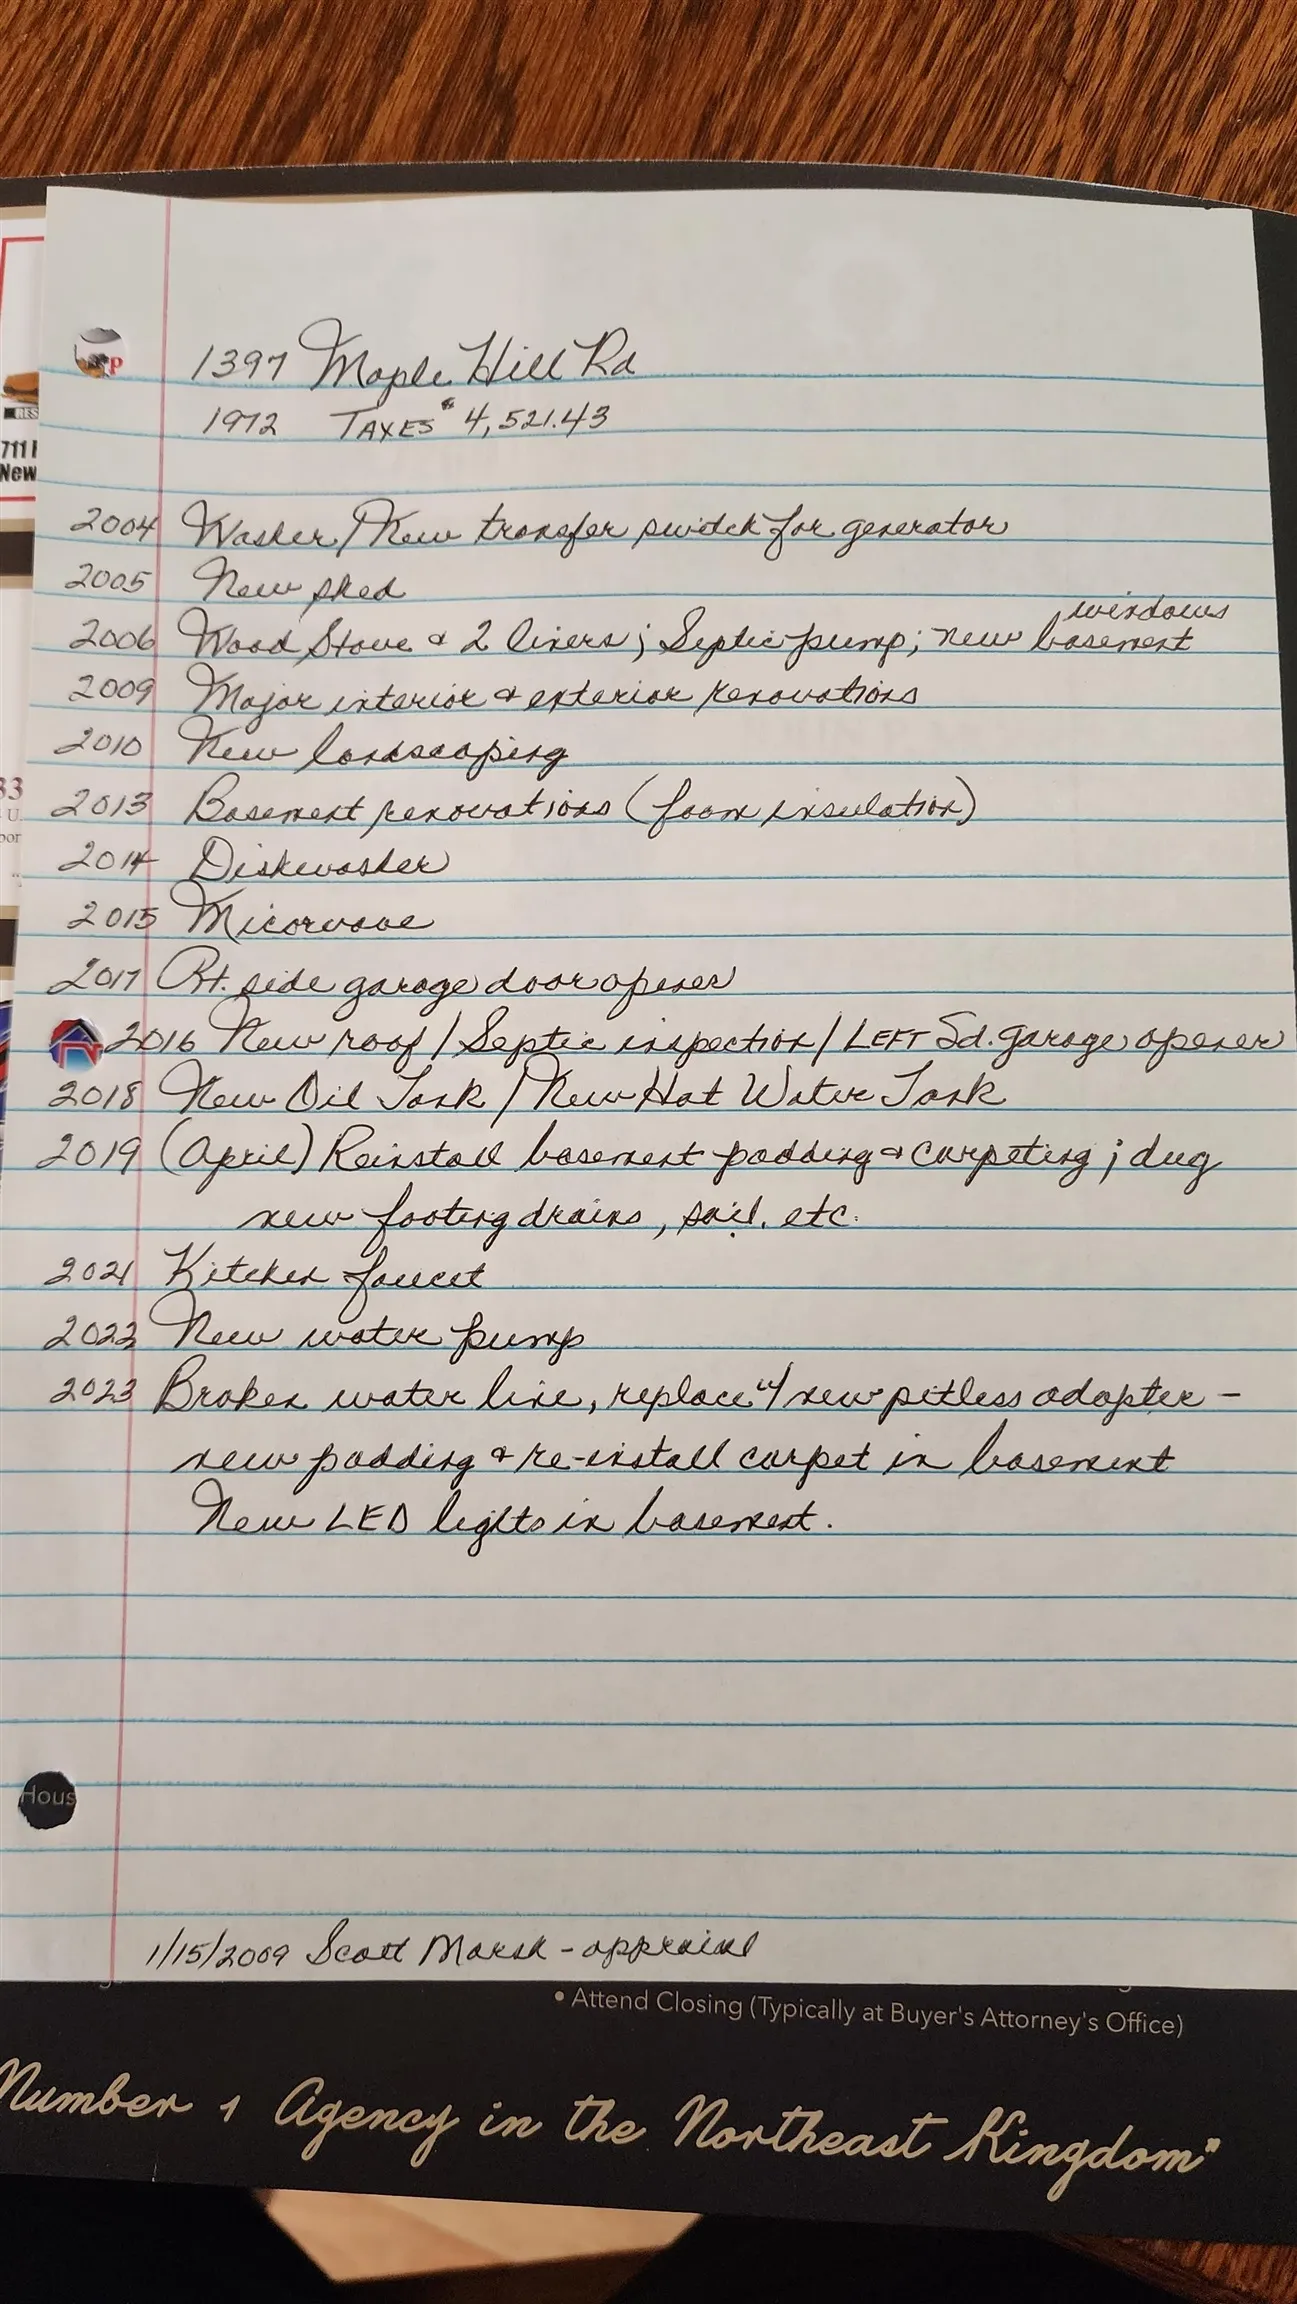 1397 Maple Hill Rd
1972 TAXES $4,521.43
2004 Washer/New transfer switch for generator
2005 New shed
windows
2006 Wood Stove & 2 liners; Septic pump; new basement
2009 Major interior & exterior renovations
2010 New landscaping
2013 Basement renovations (foam insulation)
2014 Dishwasher
2015 Micorwave
2017 Rt. side garage door opener
2016 New roof/Septic inspection/LEFT Sd. garage opener
2018 New Oil Tank/New Hot Water Tank
2019 (April) Reinstall basement padding & carpeting; dug
new footing drains, soil, etc.
2021 Kitchen faucet
2022 New water pump
2023 Broken water line, replace w/ new pitless adapter -
new padding & re-install carpet in basement
New LED lights in basement.
1/15/2009 Scott Marsh - appraisal
• Attend Closing (Typically at Buyer's Attorney's Office)
Number 1 Agency in the Northeast Kingdom"
p
RES
711
New
33
U.
Hous